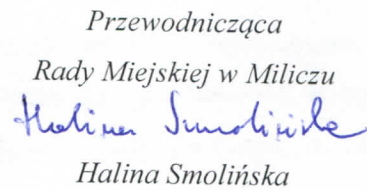 Przewodnicząca
Rady Miejskiej w Miliczu
Halina Smolińska
Halina Smolińska